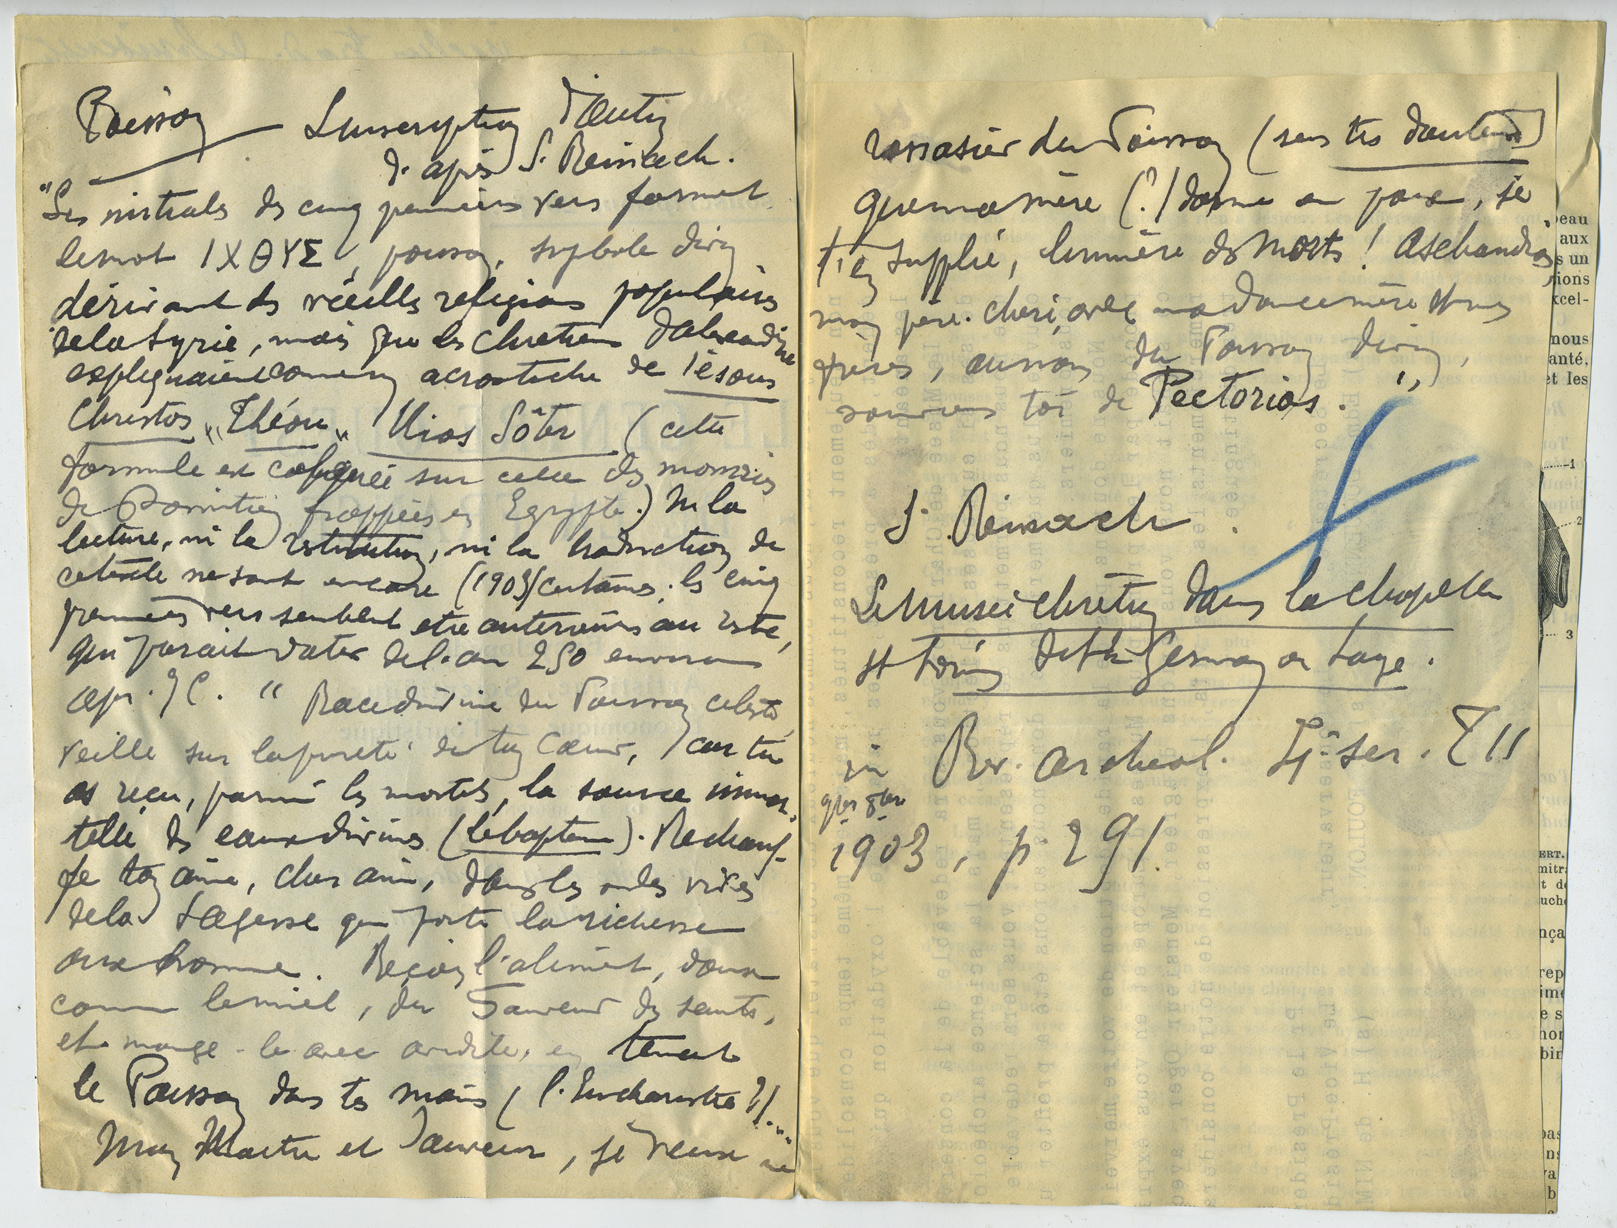 Poisson — L'inscription d'Autun
d'après S. Reinach.
"Les initiales des cinq premiers vers forment
le mot ΙΧΘΥΣ, poisson, symbole divin
dérivant des vieilles religions populaires
de la Syrie, mais que les Chrétiens d'Alexandrie
expliquaient comme un acrostiche de Iésous
Christos "Théou" Uios Sôter (cette
formule est calquée sur celle des monnaies
de Domitien frappées en Egypte.) Ni la
lecture, ni la restitution, ni la traduction de
ce texte ne sont encore (1903) certaines; les cinq
premiers vers semblent etre antérieurs au reste,
qui parait dater de l'an 250 environ
apr. J C. " Race divine du Poisson céleste,
veille sur la pureté de ton Cœur, car tu
as reçu, parmi les mortels, la source immor-
telle des eaux divines (le baptême). Réchauf-
fe ton âme, cher ami, dans les ondes vives
de la Sagesse qui porte la richesse
aux hommes. Reçois l'aliment, doux
comme le miel, du Sauveur des saints,
et mange-le avec avidité, en tenant
le Poisson dans tes mains (l'Eucharistie?)....
Mon Maître et Sauveur, je veux me
rassasier du Poisson (sens très douteux)
que ma mère (?) dorme en paix, je
t'en supplie, lumière des Morts! Aschandios
mon père chéri, avec ma douce mère et mes
frères, au nom du Poisson divin,
souviens toi de Pectorios."
S. Reinach.
Le Musée chrétien dans la chapelle
St Louis de St Germain en Laye.
in Rev. archéol. 4e ser. T II
9bre 8bre
1903, p. 291.
peau
aux
s un
tions
xcel-
nous
anté,
et les
1
2
3